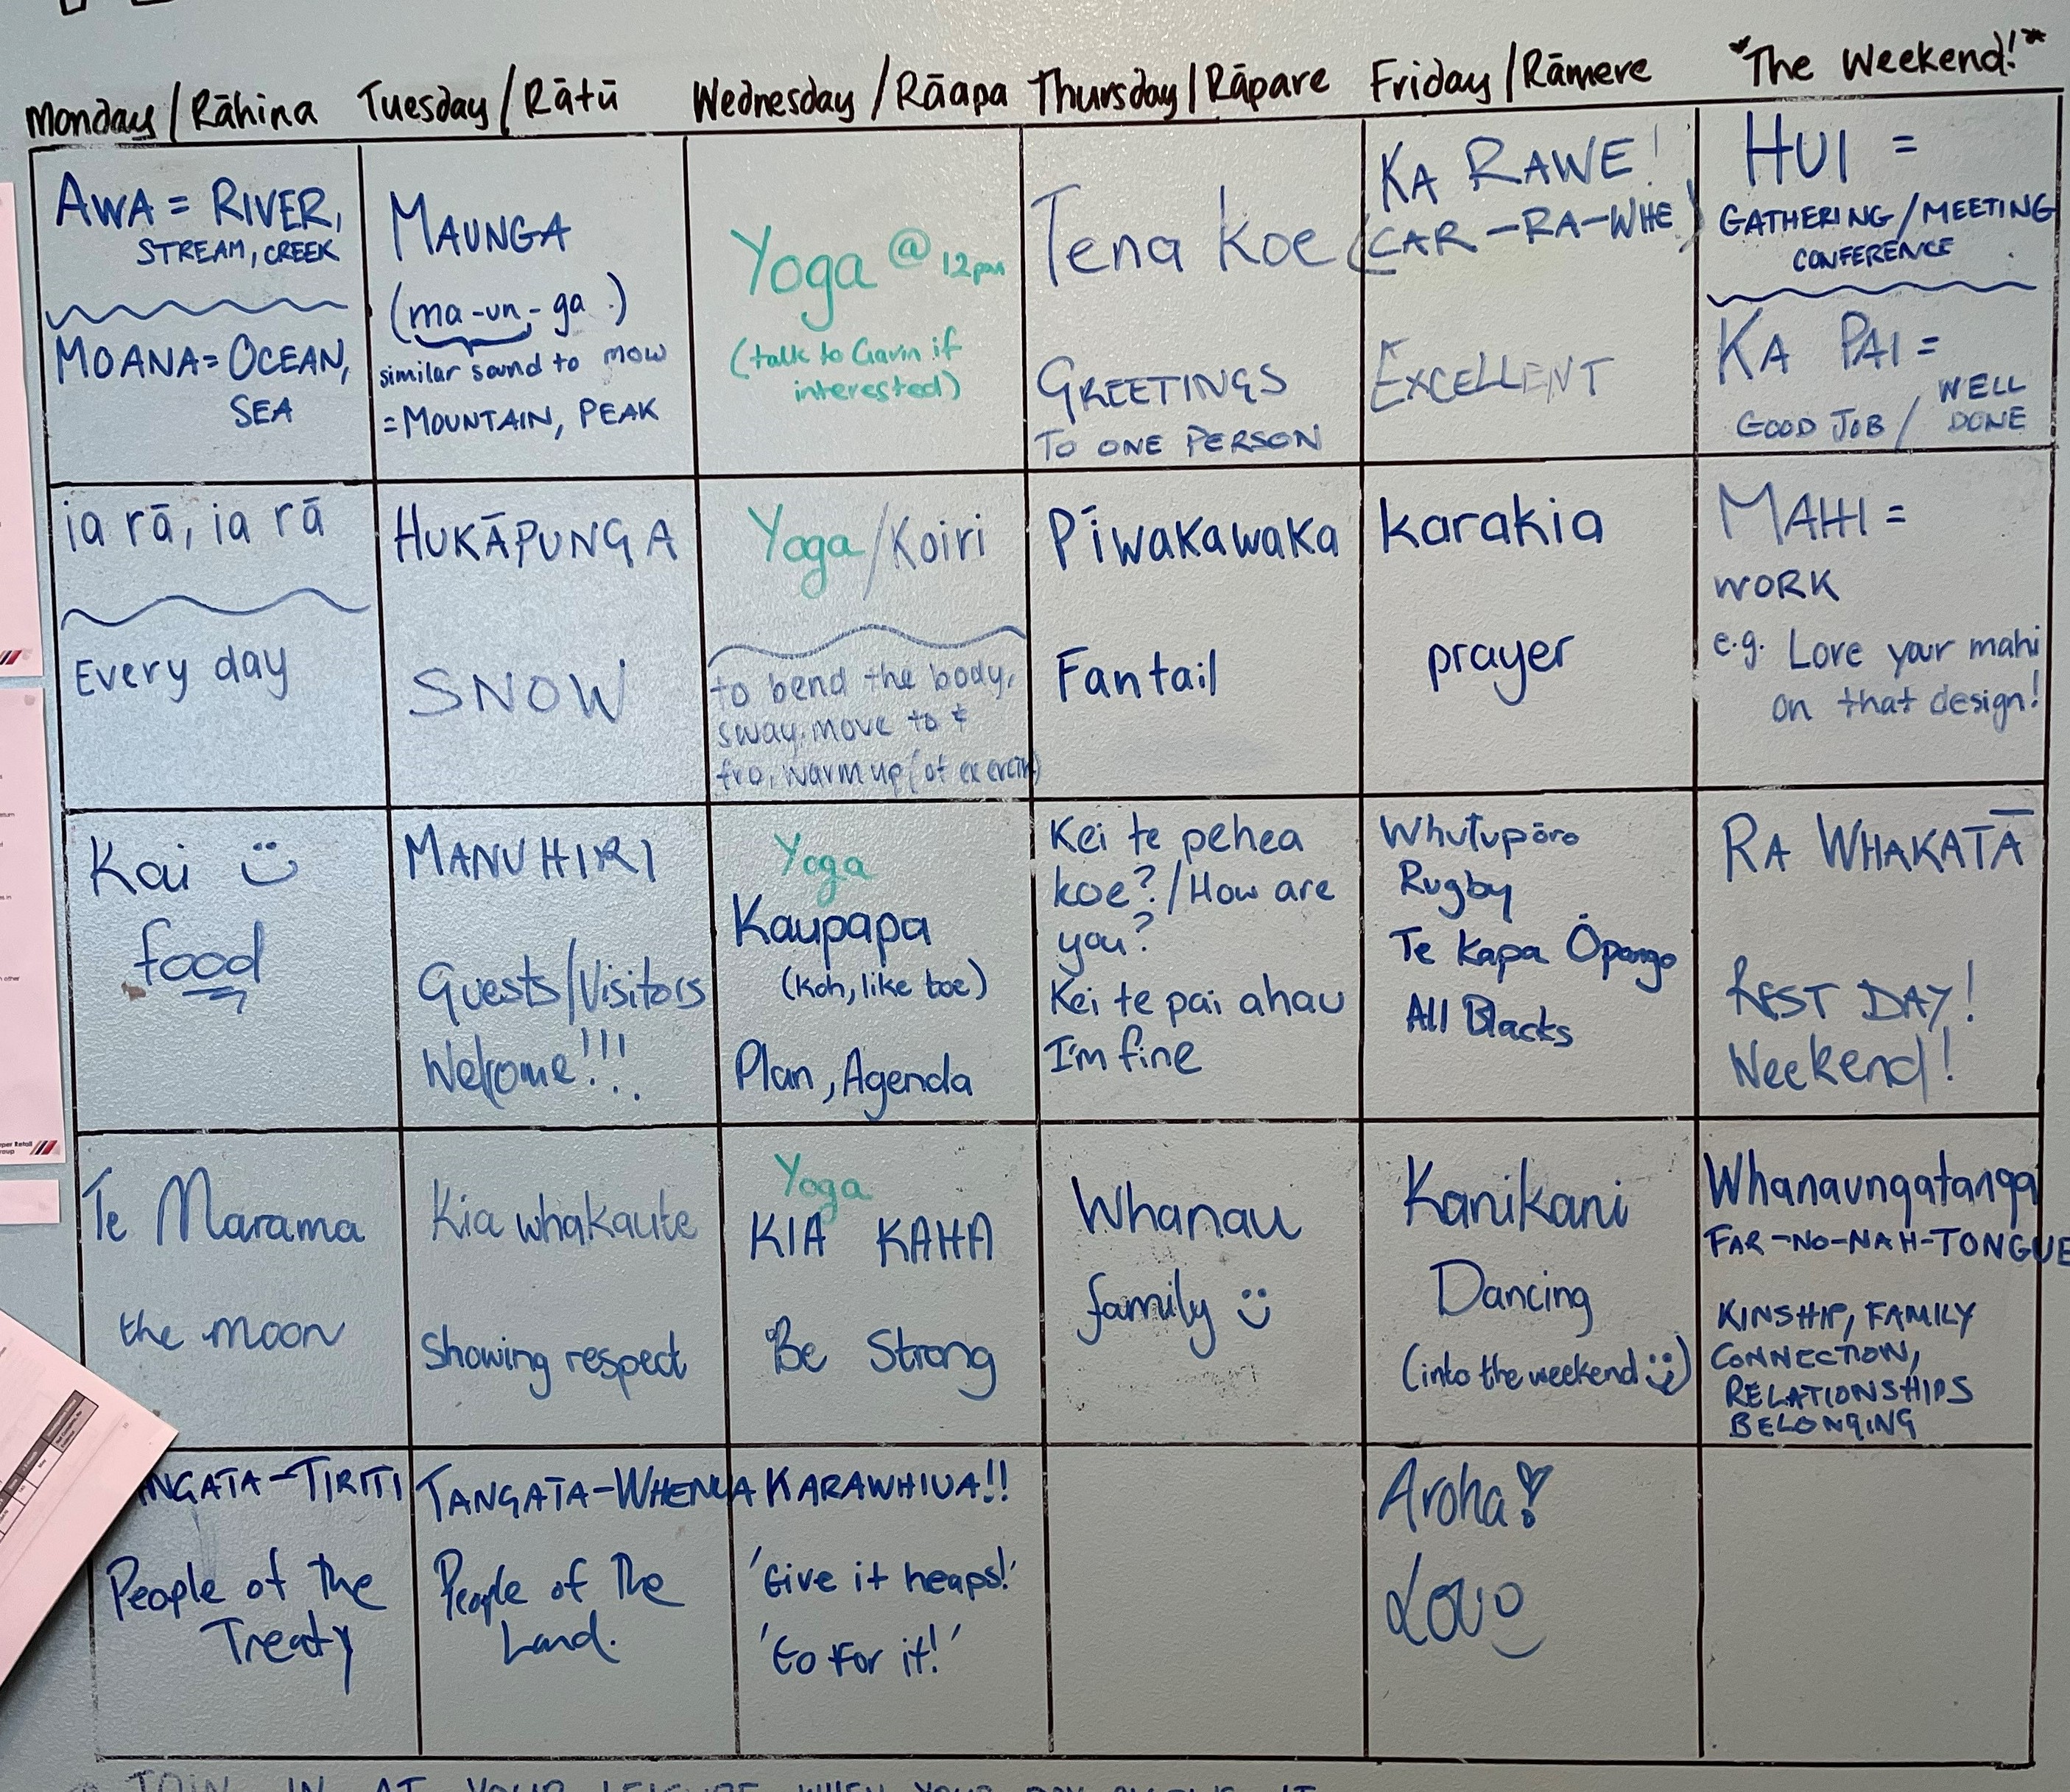 Monday / Rāhina
Tuesday / Rātū
Wednesday / Rāapa
Thursday / Rāpare
Friday / Rāmere
"The Weekend!"
AWA = RIVER,
STREAM, CREEK
MOANA = OCEAN,
SEA
MAUNGA
(ma-un-ga)
similar sound to mow
= MOUNTAIN, PEAK
Yoga @ 12pm
(talk to Gavin if
interested)
Tena Koe
GREETINGS
TO ONE PERSON
KA RAWE!
(CAR-RA-WHE)
EXCELLENT
HUI =
GATHERING / MEETING
CONFERENCE
KA PAI =
GOOD JOB / WELL
DONE
ia rā, ia rā
Every day
HUKĀPUNGA
SNOW
Yoga / Koiri
to bend the body,
sway, move to &
fro, warm up (of exercise)
Pīwakawaka
Fantail
karakia
prayer
MAHI =
WORK
e.g. Love your mahi
on that design!
Kai
food
MANUHIRI
Guests/Visitors
Welcome!!!
Yoga
Kaupapa
(Koh, like toe)
Plan, Agenda
Kei te pehea
koe? / How are
you?
Kei te pai ahau
I'm fine
Whutupōro
Rugby
Te Kapa Ōpango
All Blacks
RA WHAKATĀ
REST DAY!
Weekend!
Te Marama
the moon
Kia whakaute
Showing respect
Yoga
KIA KAHA
Be Strong
Whanau
family
Kanikani
Dancing
(into the weekend)
Whanaungatanga
FAR-NO-NAH-TONGUE
KINSHIP, FAMILY
CONNECTION,
RELATIONSHIPS
BELONGING
NGATA-TIRITI
People of the
Treaty
TANGATA-WHENUA
People of the
Land.
KARAWHIUA!!
'Give it heaps!'
'Go For it!'
Aroha!
Love